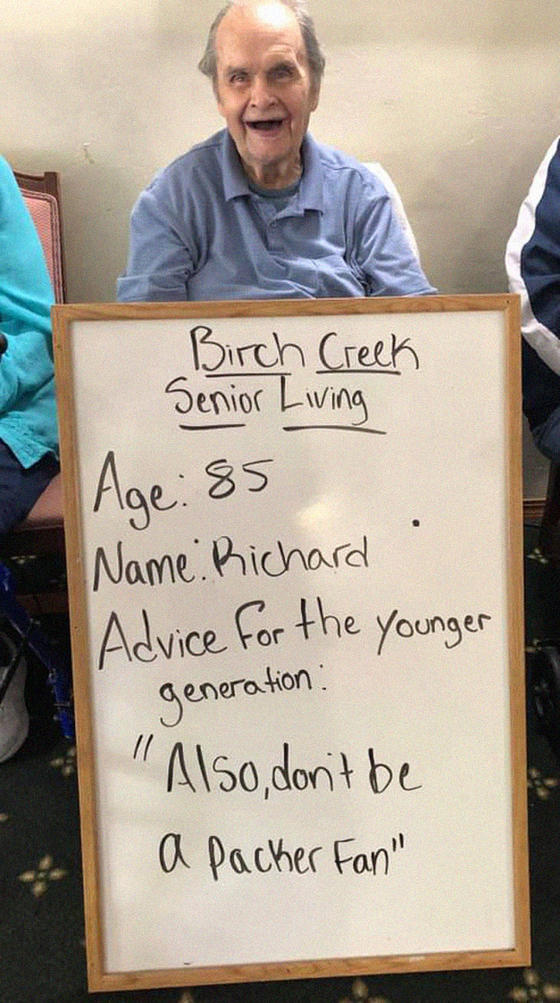 Birch Creek
Senior Living
Age: 85
Name: Richard
Advice for the younger
generation:
"Also, don't be
a Packer Fan"